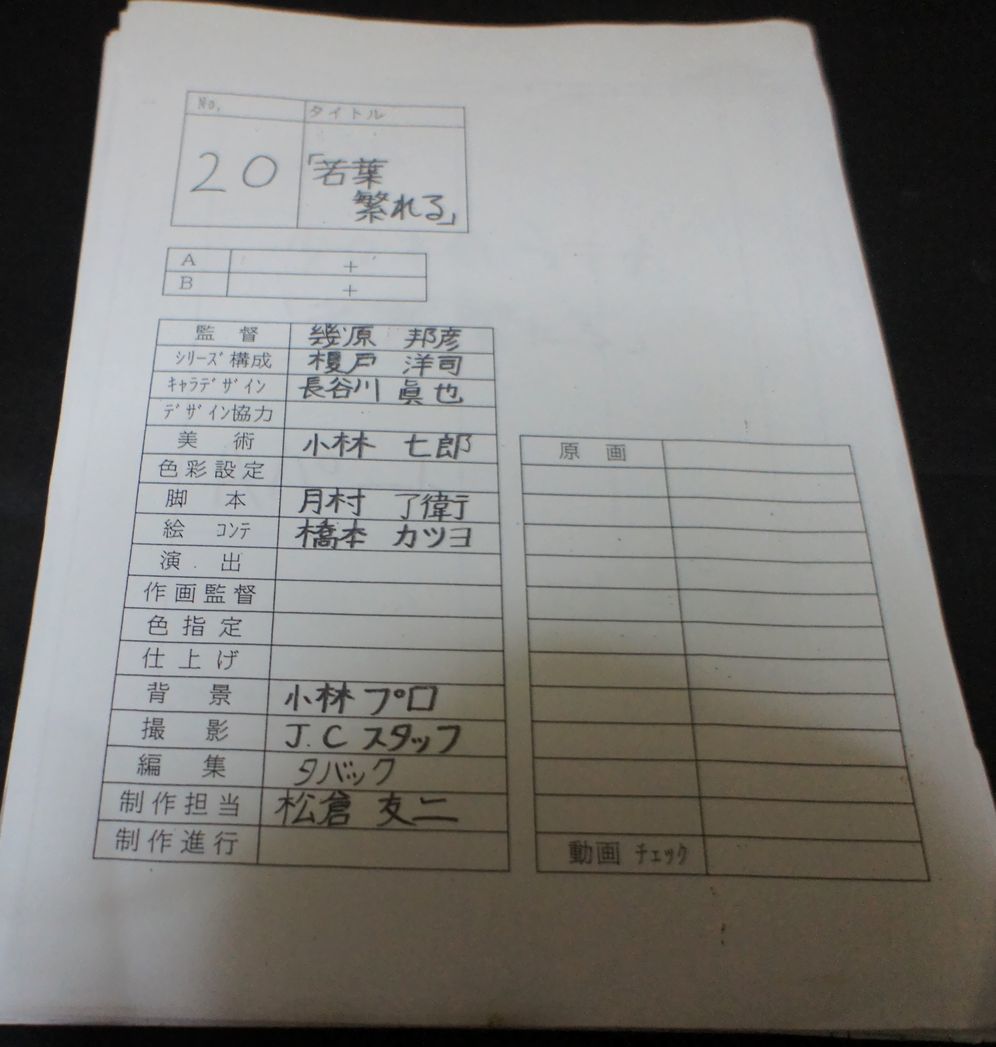 No. タイトル
20 「若葉
繁れる」
A +
B +
監督 幾原 邦彦
シリーズ構成 榎戸 洋司
キャラデザイン 長谷川 眞也
デザイン協力
美術 小林 七郎
色彩設定
脚本 月村 了衛
絵コンテ 橋本 カツヨ
演出
作画監督
色指定
仕上げ
背景 小林プロ
撮影 J.C スタッフ
編集 タバック
制作担当 松倉 友二
制作進行
原画
動画チェック